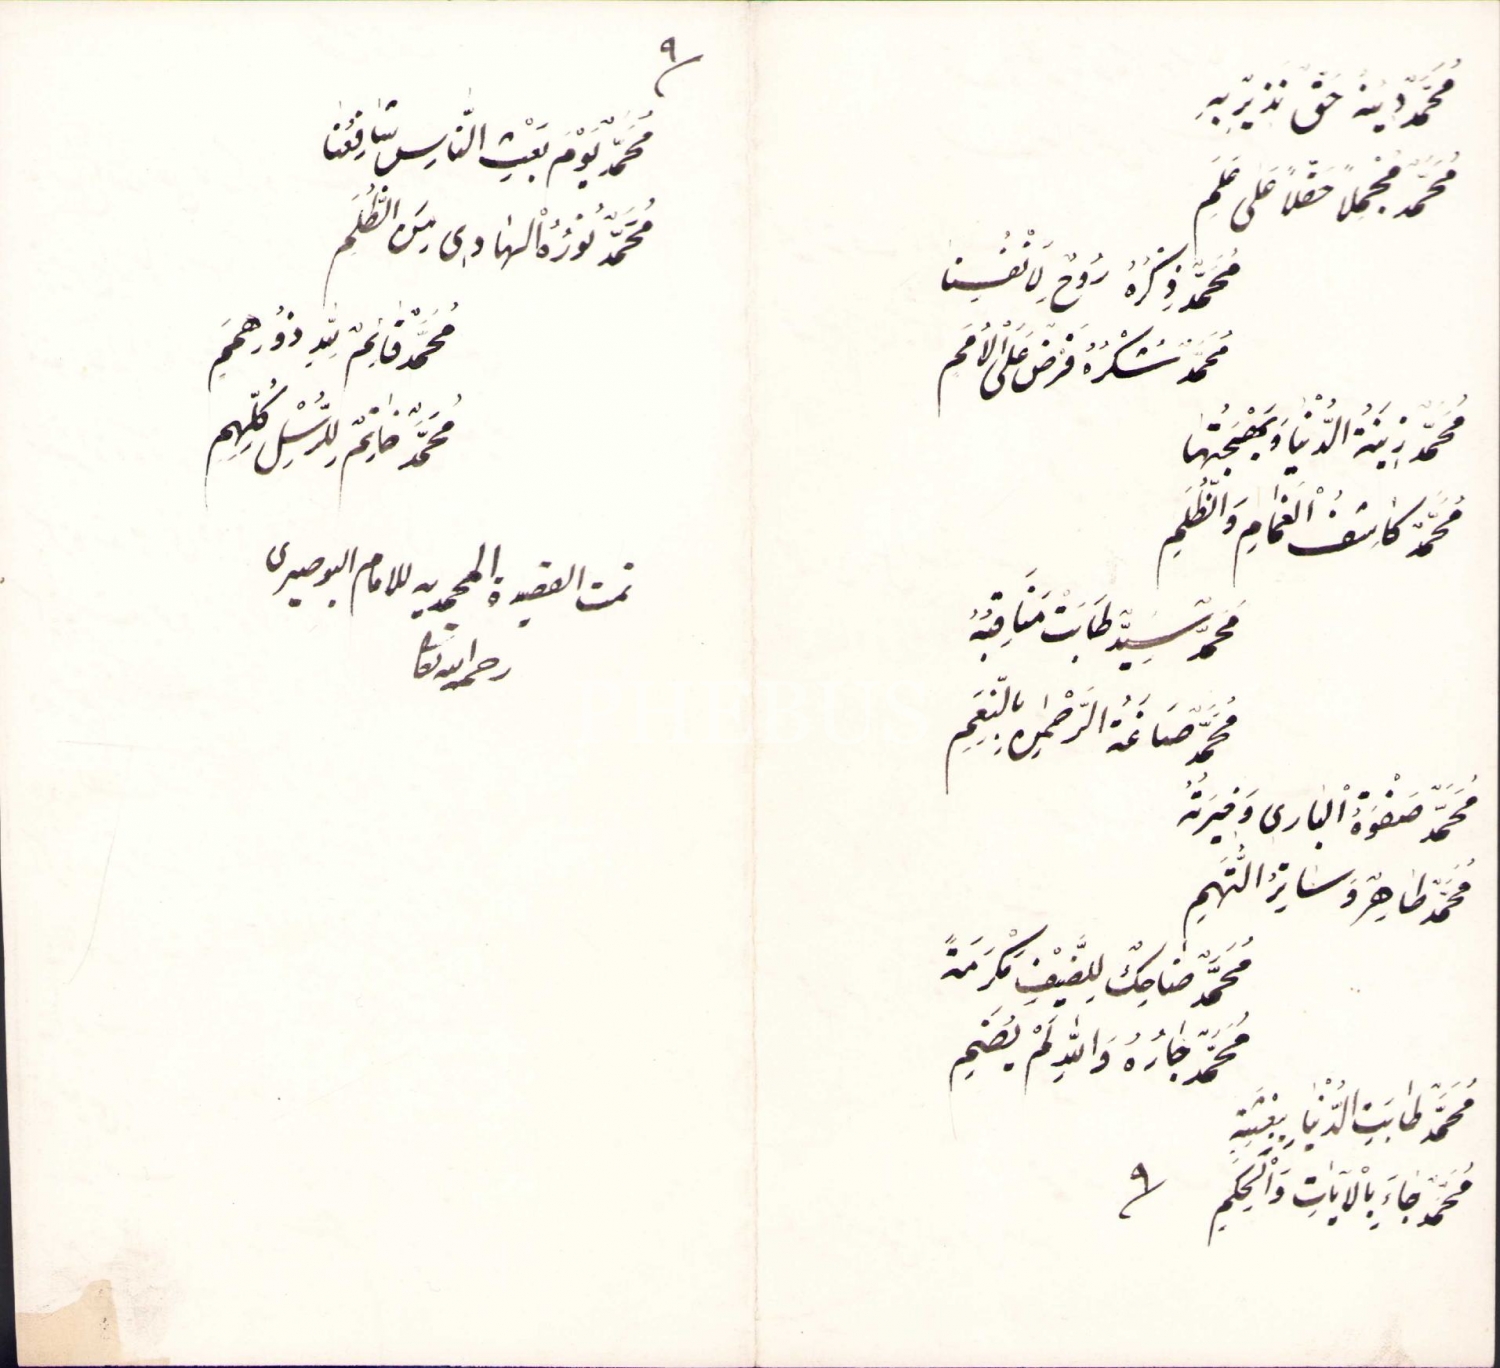 مُحَمَّدٌ دِينُهُ حَقٌّ نَذِيرٌ بِهِ
مُحَمَّدٌ مُجْمِلاً حَقًّا عَلَى عَلَمِ
مُحَمَّدٌ ذِكْرُهُ رُوحٌ لِأَنْفُسِنَا
مُحَمَّدٌ شُكْرُهُ فَرْضٌ عَلَى الْأُمَمِ
مُحَمَّدٌ زِينَةُ الدُّنْيَا وَبَهْجَتُهَا
مُحَمَّدٌ كَاشِفُ الْغَمَامِ وَالظُّلَمِ
مُحَمَّدٌ سَيِّدٌ طَابَتْ مَنَاقِبُهُ
مُحَمَّدٌ صَاغَهُ الرَّحْمٰنُ بِالنِّعَمِ
مُحَمَّدٌ صَفْوَةُ الْبَارِى وَخِيرَتُهُ
مُحَمَّدٌ طَاهِرٌ وَسَاتِرُ التُّهَمِ
مُحَمَّدٌ ضَاحِكٌ لِلضَّيْفِ مَكْرَمَةً
مُحَمَّدٌ جَارُهُ وَاللّٰهِ لَمْ يُضَمِ
مُحَمَّدٌ طَابَتِ الدُّنْيَا بِبِعْثَتِهِ
مُحَمَّدٌ جَاءَ بِالْآيَاتِ وَالْحِكَمِ
٩
٩
مُحَمَّدٌ يَوْمَ بَعْثِ النَّاسِ شَافِعُنَا
مُحَمَّدٌ نُورُهُ الْهَادِى مِنَ الظُّلَمِ
مُحَمَّدٌ قَائِمٌ لِلّٰهِ ذُو هِمَمِ
مُحَمَّدٌ خَاتِمٌ لِلرُّسُلِ كُلِّهِمِ
تمت القصيدة المحمديه للامام البوصيرى
رحمه الله تعا